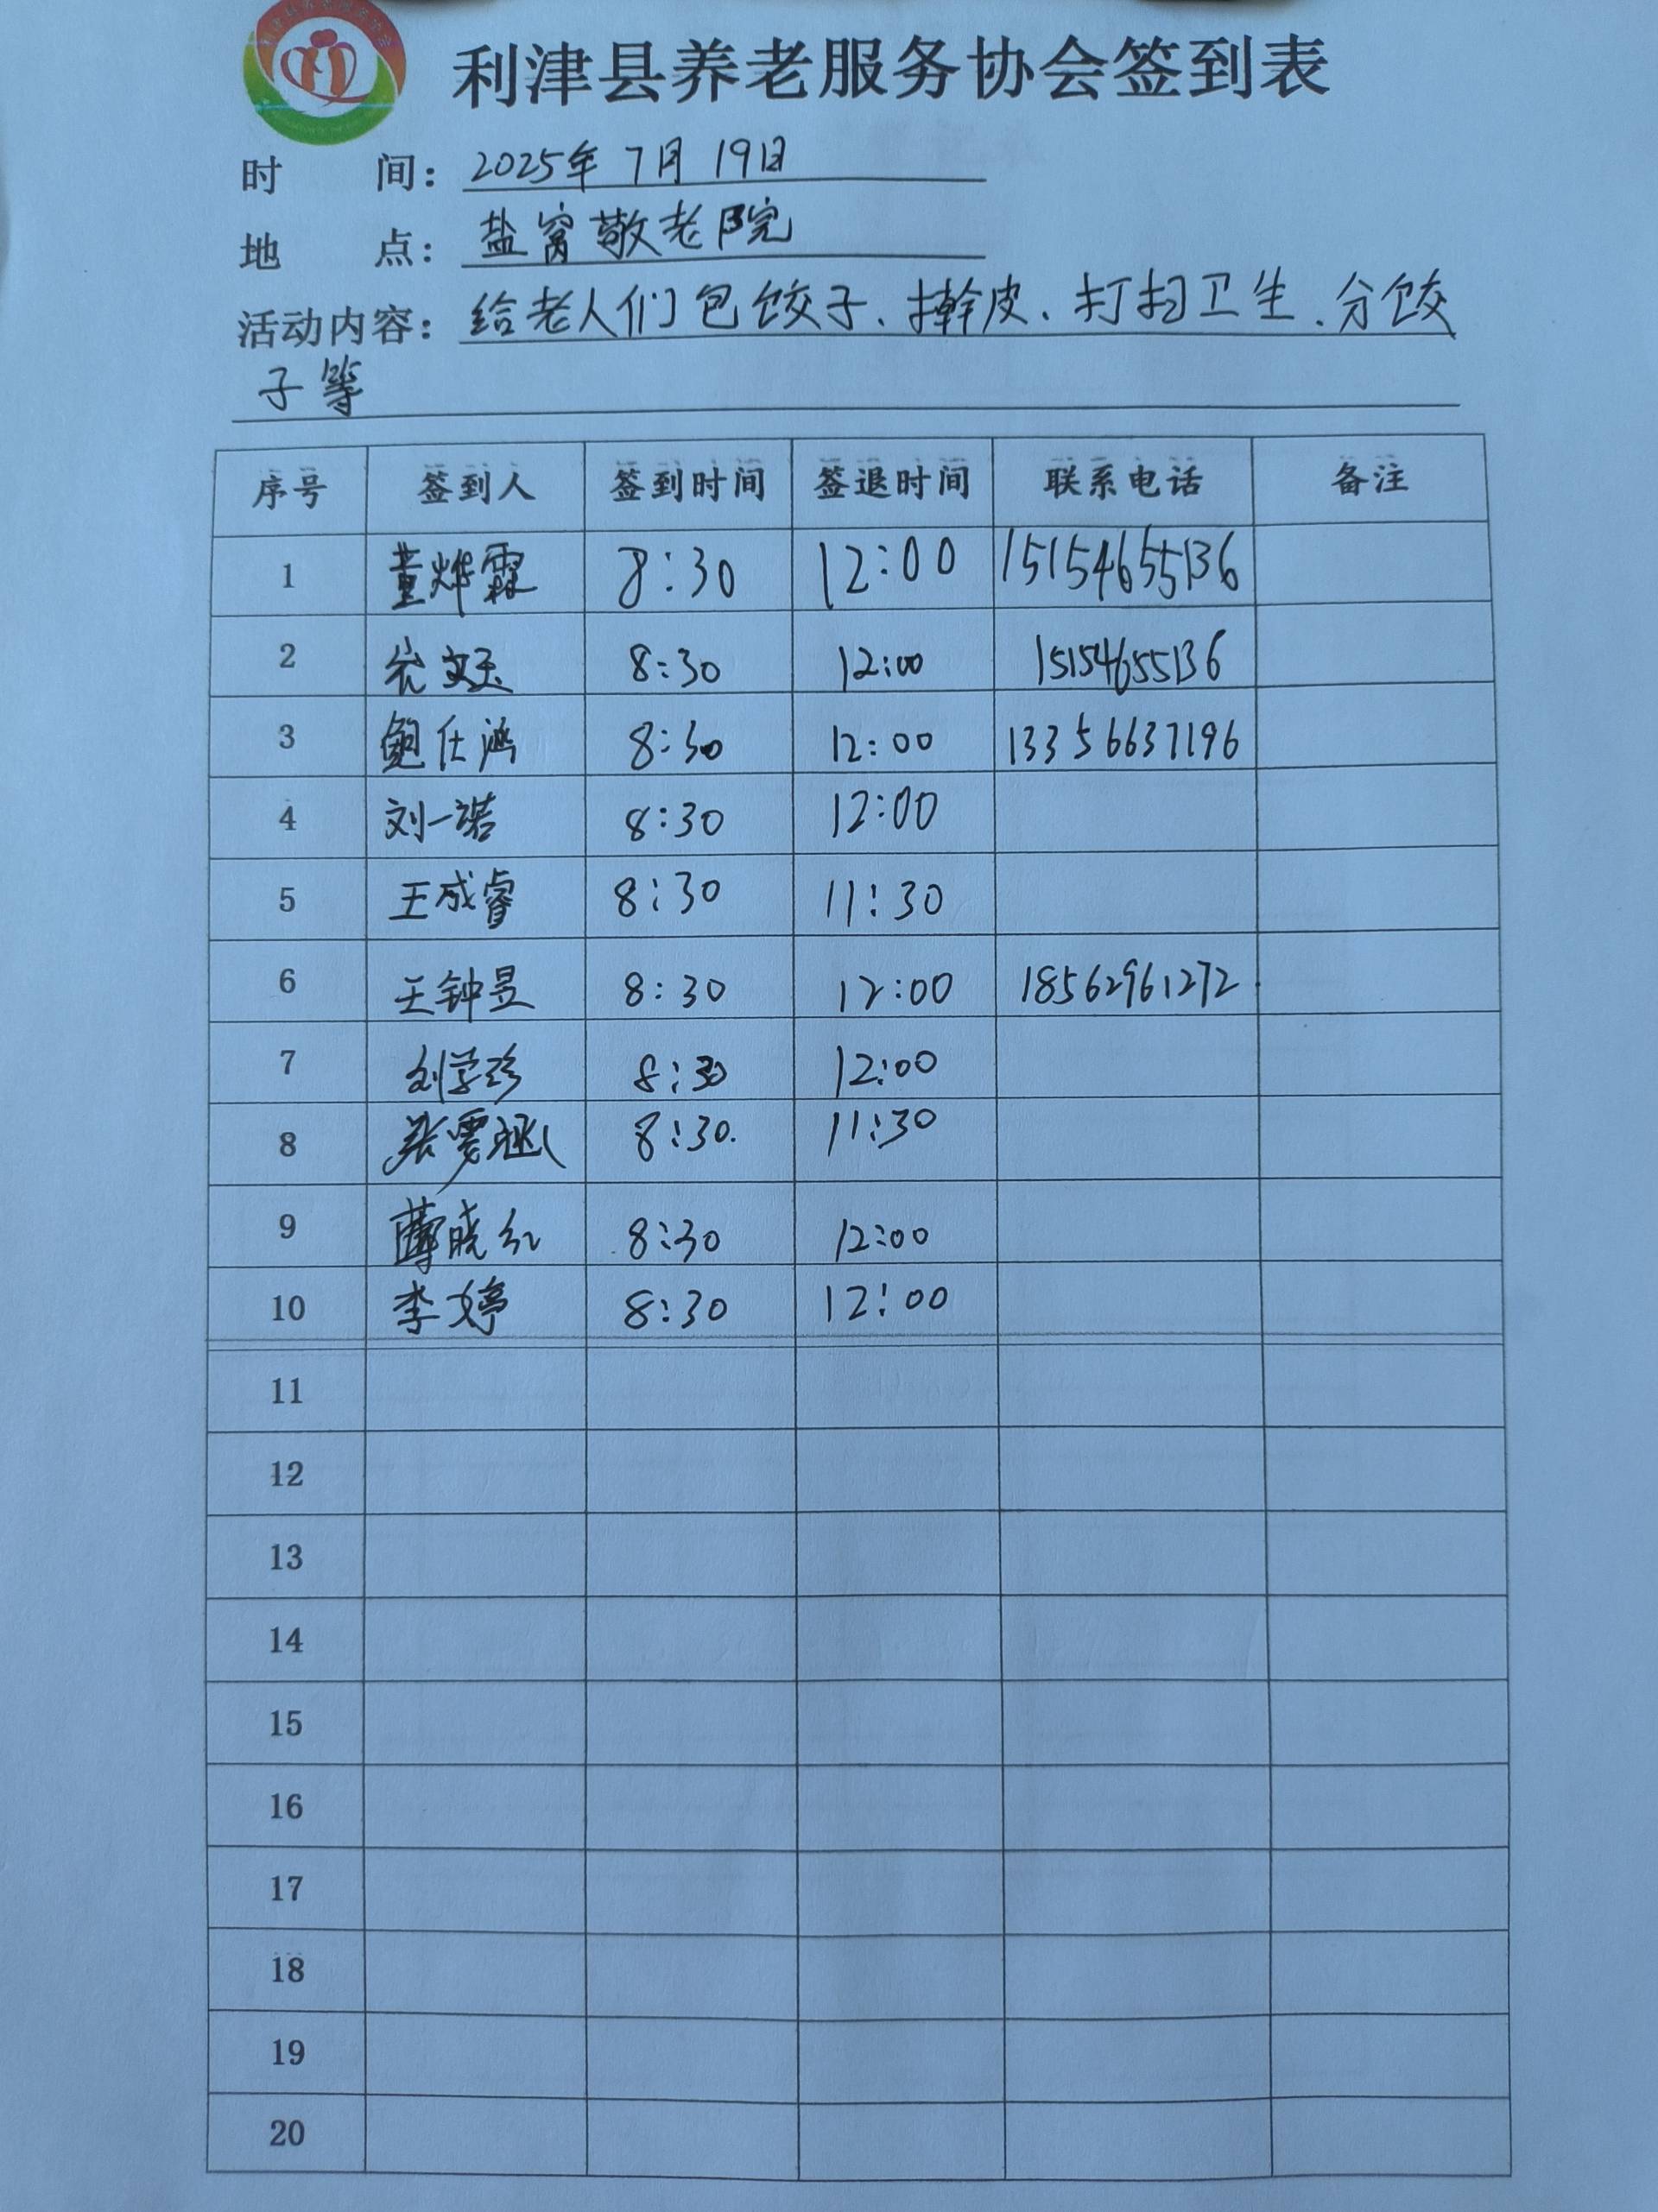 利津县养老服务协会签到表
时 间: 2025年 7月 19日
地 点: 盐窝敬老院
活动内容: 给老人们包饺子、擀皮、打扫卫生、分饺
子等
序号 签到人 签到时间 签退时间 联系电话 备注
1 董烨霖 8:30 12:00 15154655136
2 崔文玉 8:30 12:00 15154655136
3 鲍仕鸿 8:30 12:00 13356637196
4 刘一诺 8:30 12:00
5 王成睿 8:30 11:30
6 王钟昱 8:30 12:00 18562961272
7 刘学珍 8:30 12:00
8 张雯涵 8:30 11:30
9 薄晓红 8:30 12:00
10 李婷 8:30 12:00
11
12
13
14
15
16
17
18
19
20